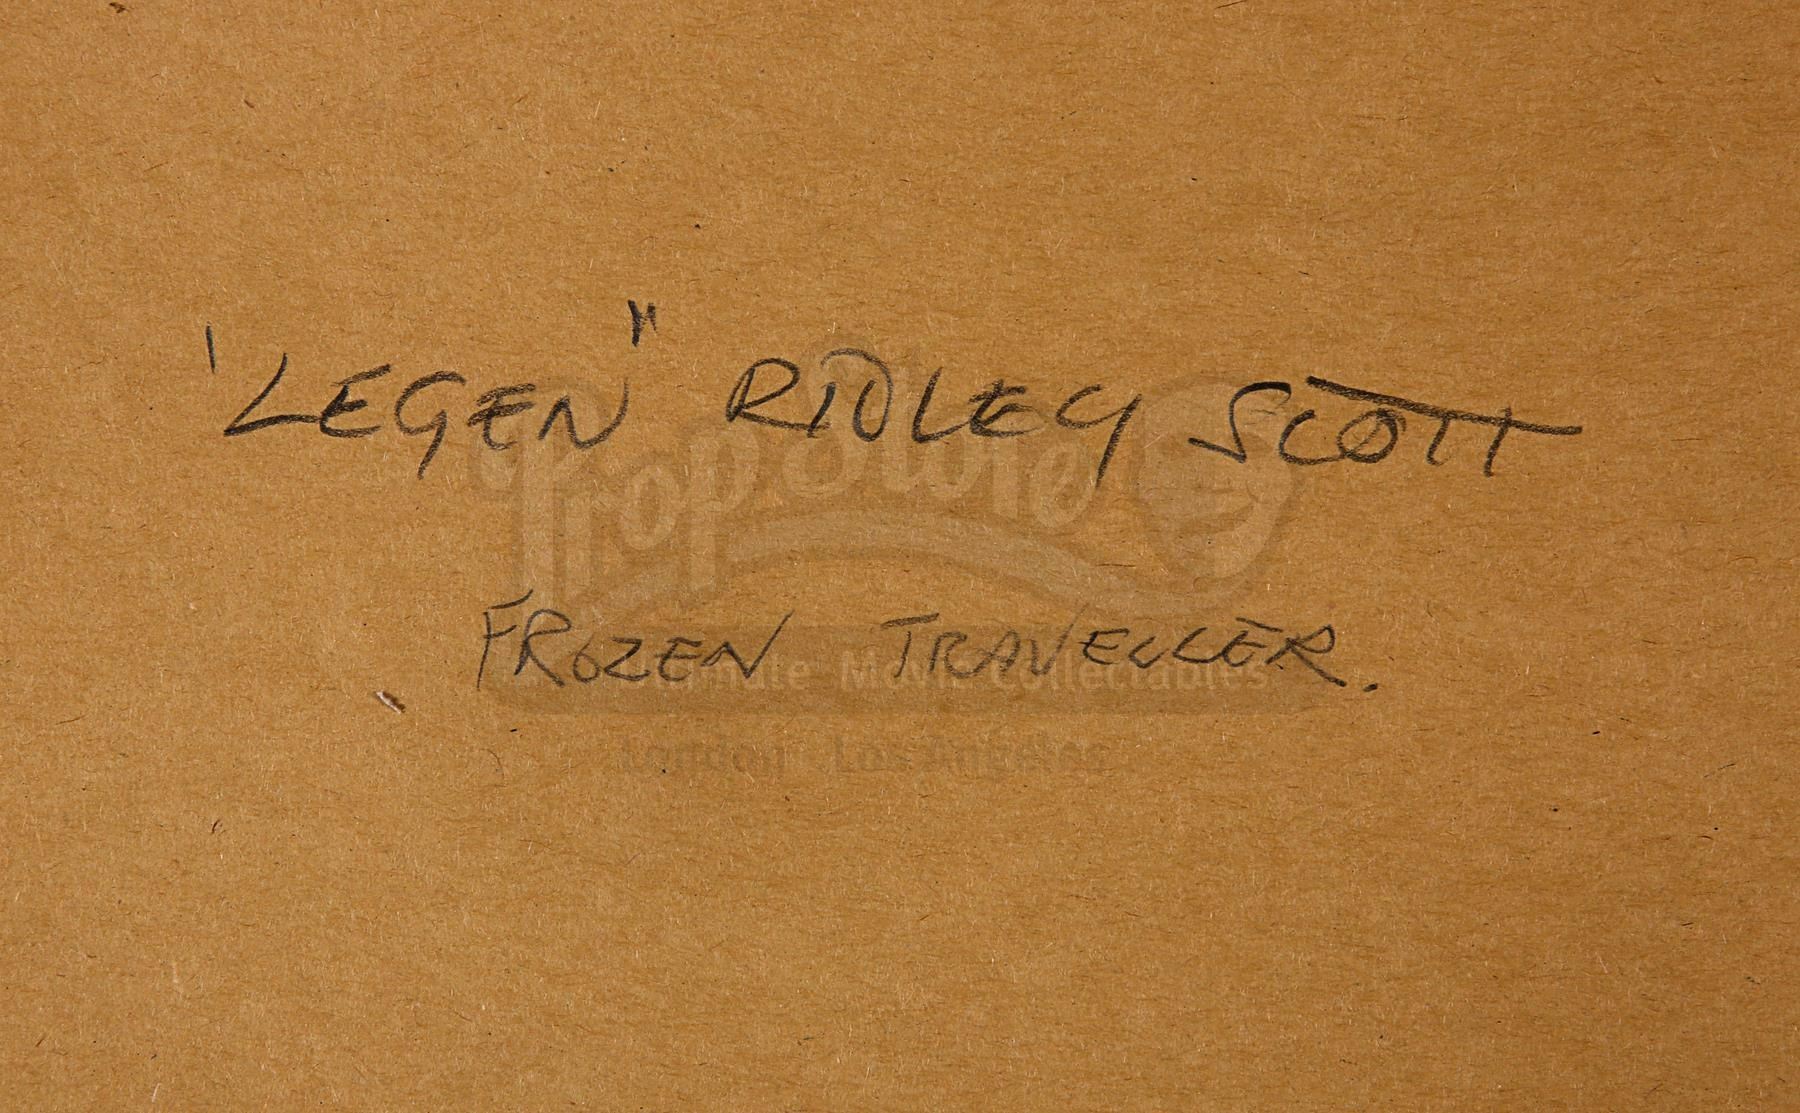 'LEGEN" RIDLEY SCOTT
PropStore
FROZEN TRAVELLER.
Ultimate Movie Collectables
London Los Angeles